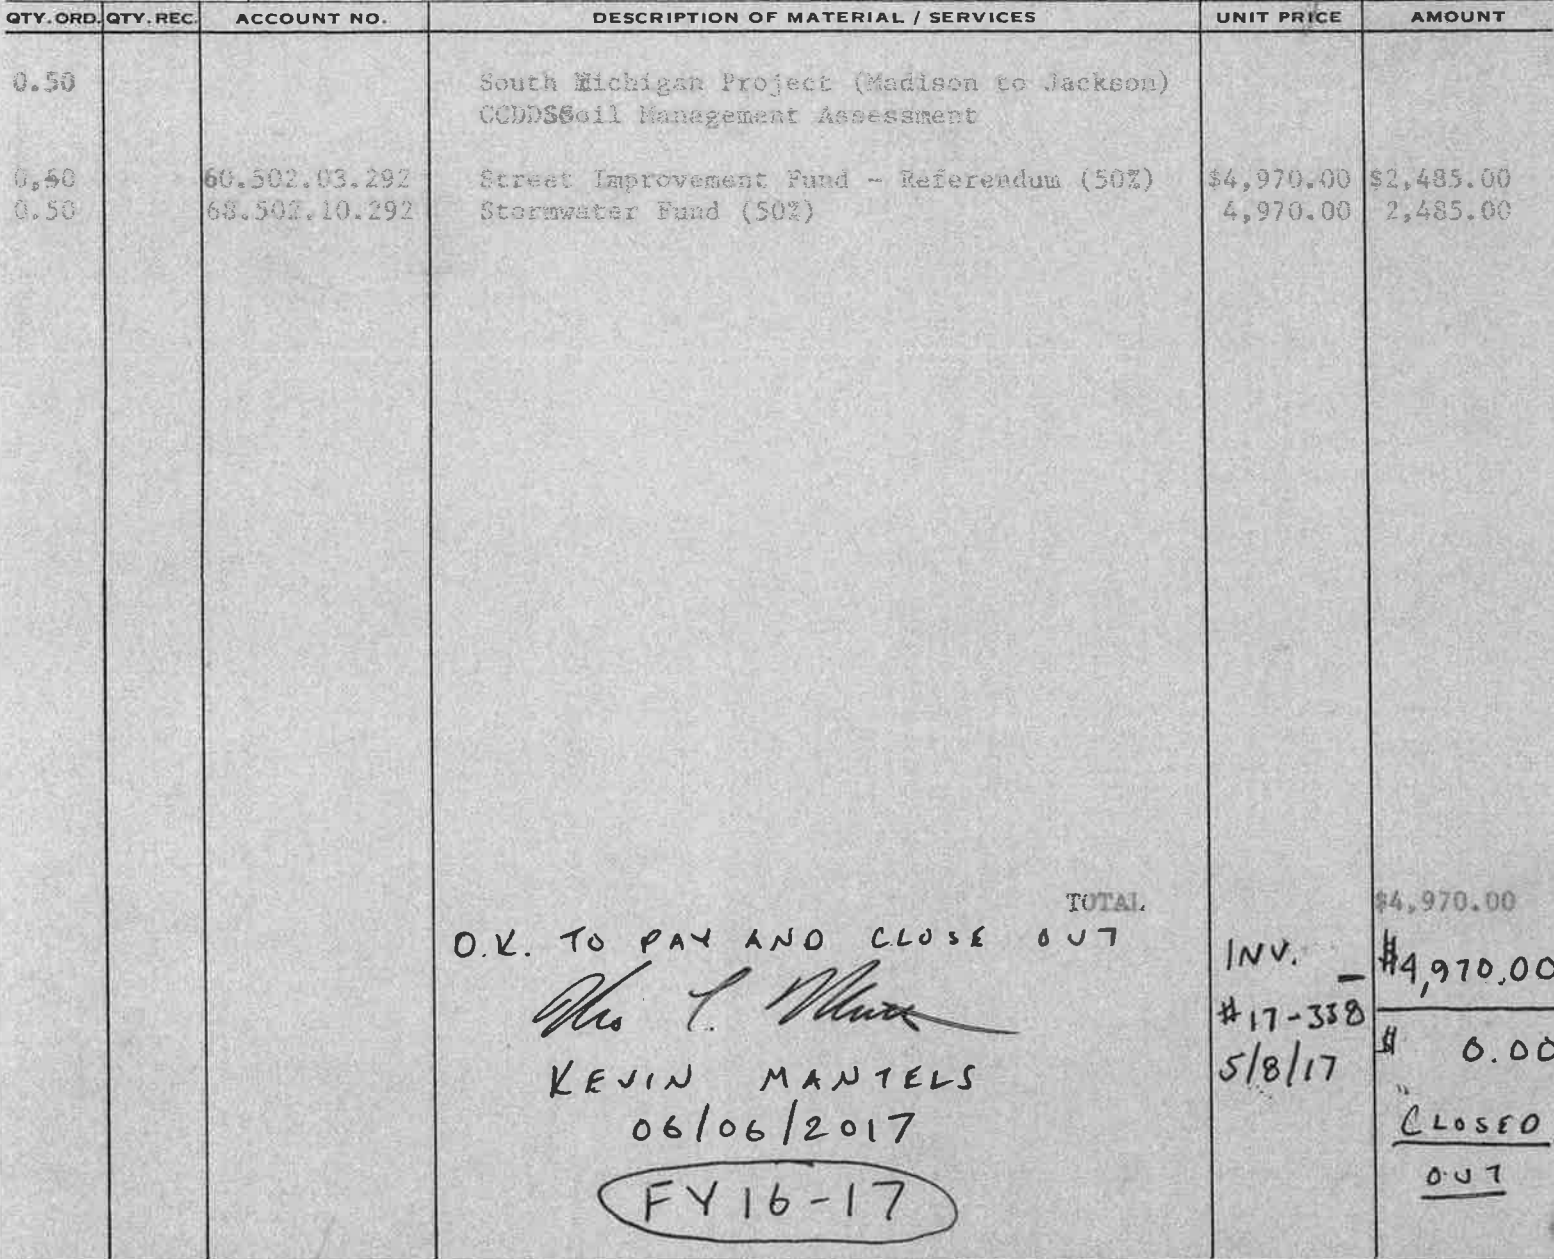 QTY. ORD. QTY. REC. ACCOUNT NO. DESCRIPTION OF MATERIAL / SERVICES UNIT PRICE AMOUNT
0.50 South Michigan Project (Madison to Jackson)
CCDDSSoil Management Assessment
0.50 60.502.03.292 Street Improvement Fund - Referendum (50%) $4,970.00 $2,485.00
0.50 68.502.10.292 Stormwater Fund (50%) 4,970.00 2,485.00
TOTAL $4,970.00
O.K. TO PAY AND CLOSE OUT
INV. - $4,970.00
#17-338
$ 0.00
5/8/17
KEVIN MANTELS
06/06/2017
CLOSED
OUT
FY16-17